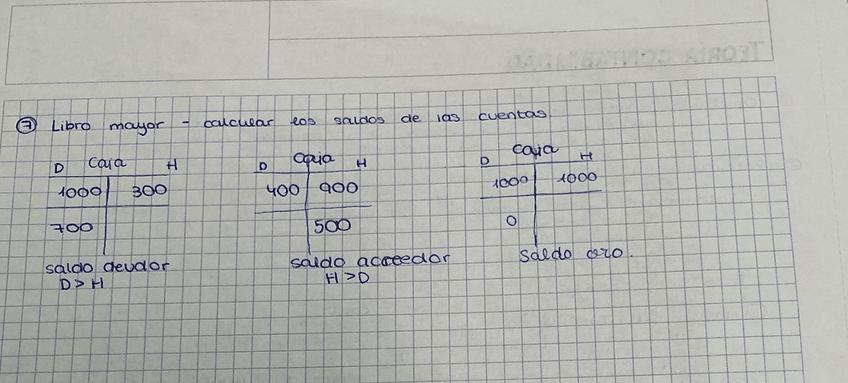 TEORÍA CONTABILIDAD
⑦ Libro mayor - calcular los saldos de las cuentas.
D Caja H
1000 300
700
saldo deudor
D > H
D Caja H
400 900
500
saldo acreedor
H > D
D Caja H
1000 1000
0
saldo cero.